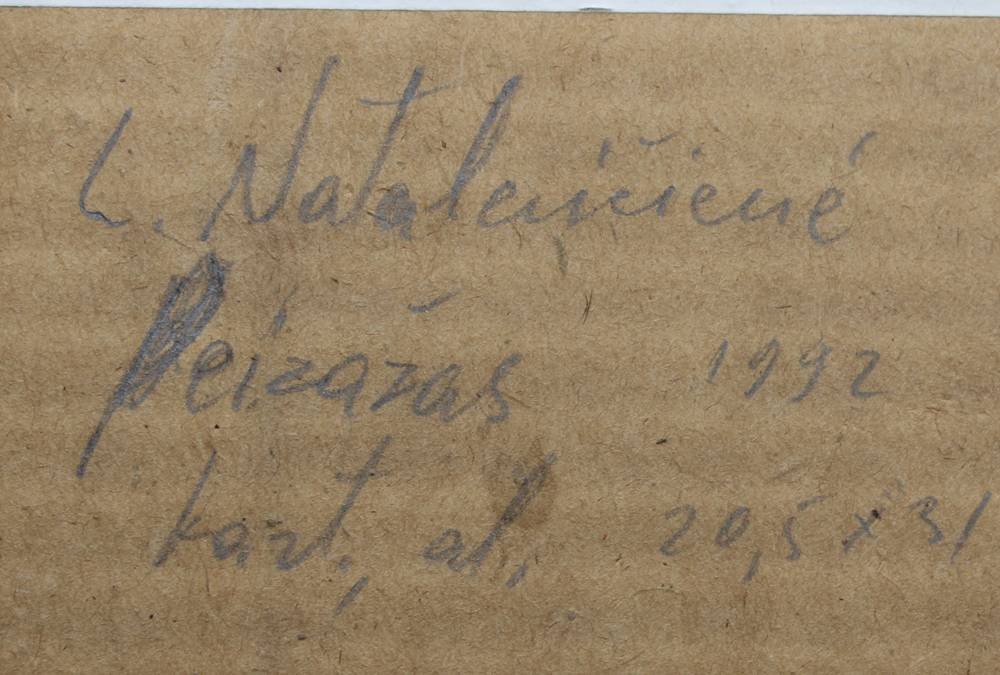 L. Natalevičienė
Peizažas 1992
kart., al. 20,5 x 31